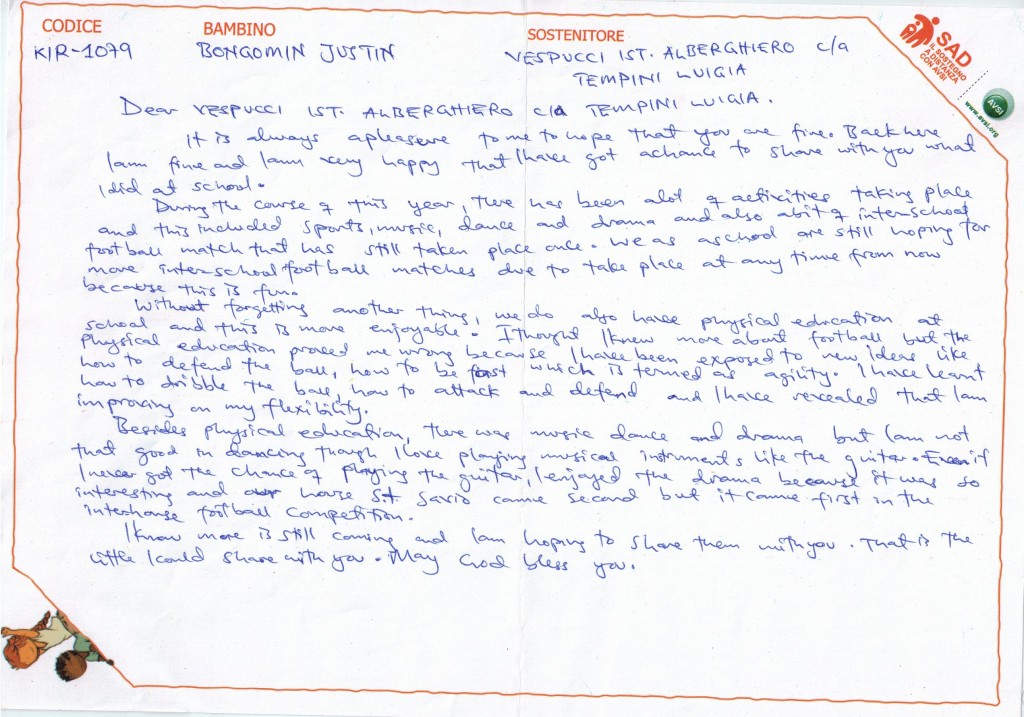 CODICE BAMBINO SOSTENITORE
KIR-1079 BONGOMIN JUSTIN VESPUCCI IST. ALBERGHIERO c/a
TEMPINI LUIGIA
SAD
IL SOSTEGNO
A DISTANZA
CON AVSI
AVSI
www.avsi.org
Dear VESPUCCI IST. ALBERGHIERO c/a TEMPINI LUIGIA.
It is always apleasere to me to hope that you are fine. Back here
Iam fine and Iam very happy that I have got achance to share with you what
I did at school.
During the course of this year, there has been alot of activities taking place
and this included sports, music, dance and drama and also abit of interschool
football match that has still taken place once. We as aschool are still hoping for
more interschool football matches due to take place at any time from now
because this is fun.
Without forgetting another thing, we do also have physical education at
school and this is more enjoyable. I thought I knew more about football but the
physical education proved me wrong because I have been exposed to new ideas like
how to defend the ball, how to be fast which is termed as agility. I have learnt
how to dribble the ball, how to attack and defend and I have revealed that Iam
improving on my flexibility.
Besides physical education, there was music dance and drama but Iam not
that good in dancing though I love playing musical instruments like the guitar. Even if
I never got the chance of playing the guitar, I enjoyed the drama because it was so
interesting and our house St Savio came second but it came first in the
interhouse football competition.
I know more is still coming and Iam hoping to share them with you. That is the
little I could share with you. May God bless you.